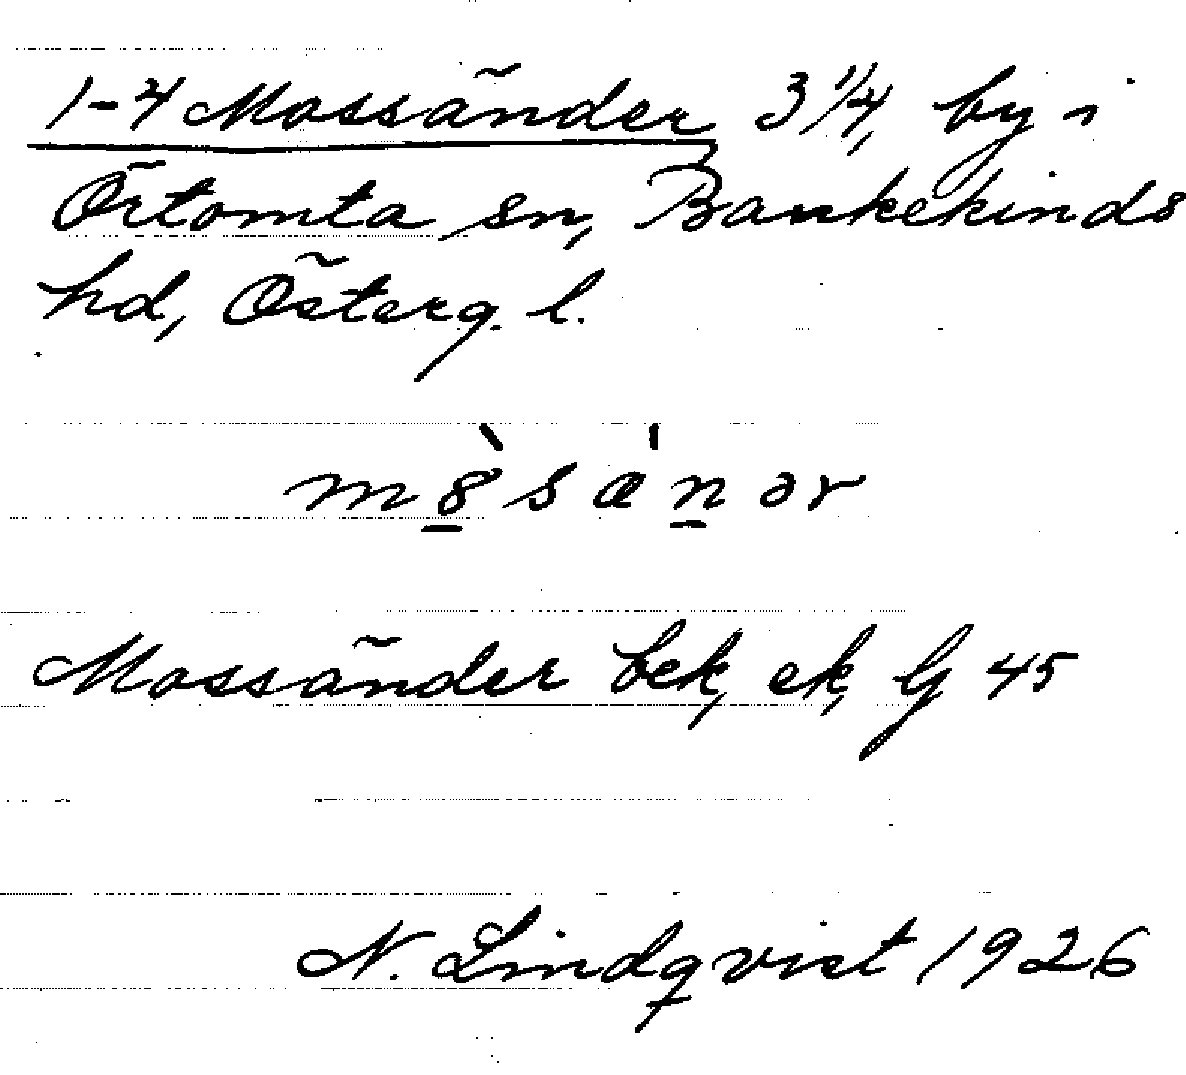 1-4 Mossänder 3 1/4, by i
Örtomta sn, Bankekinds
hd, Österg. l.
Mossänder bek, ek, G 45
N. Lindqvist 1926